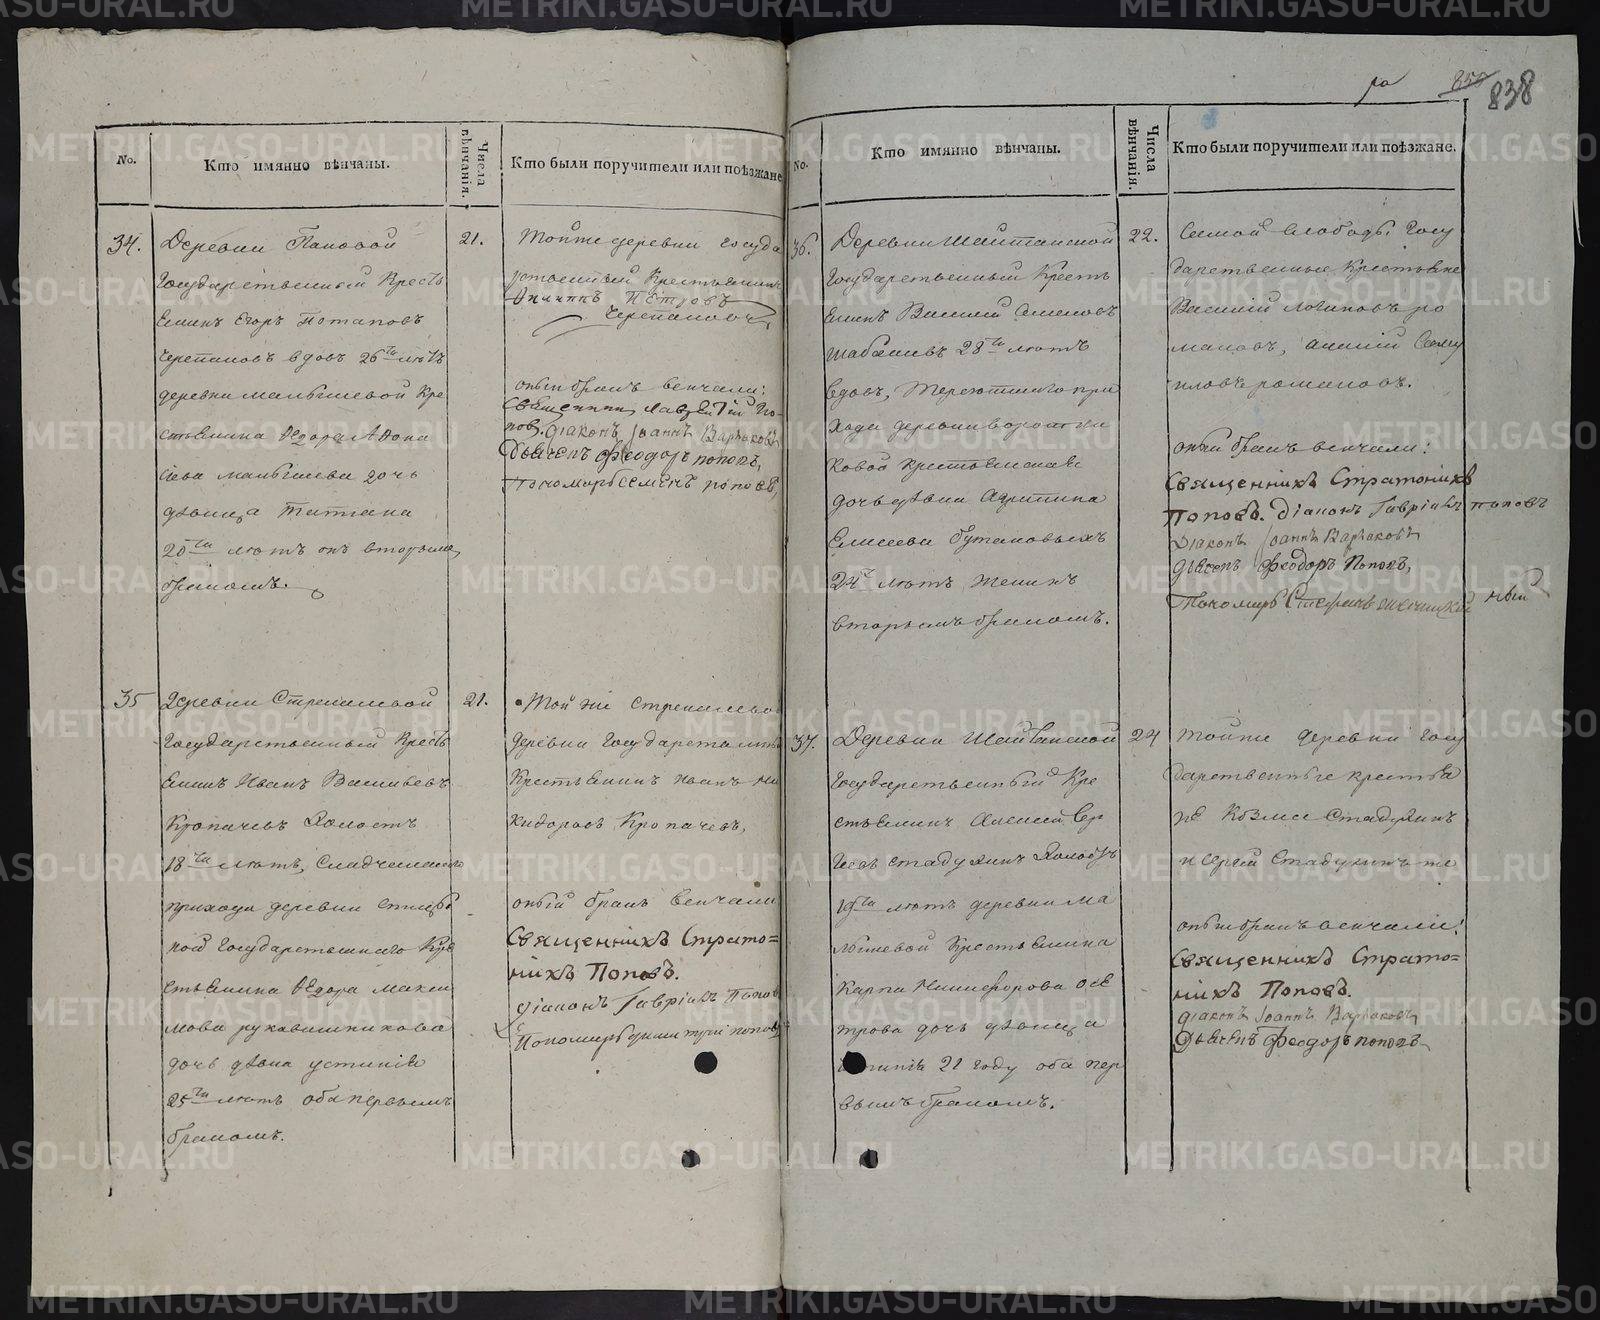 838
No.
Кто имянно вѣнчаны.
Числа вѣнчанія.
Кто были поручители или поѣзжане
34.
Деревни Пановой
Государственный Кресть
янинъ Егоръ Потаповъ
Черепановъ вдовъ 26ти лѣтъ
деревни Малышевой Кре
стьянина Ѳедора
Малышева дочь
дѣвица Татиана
20ти лѣтъ онъ вторымъ
бракомъ.
21.
Той же деревни Госуда
рственный Крестьянинъ
Филиппъ Петровъ
Черепановъ
оный бракъ венчали:
Священникъ Лаврентій По-
повъ. Діаконъ Іоаннъ Варлаковъ
Дьячекъ Феодоръ Поповъ,
Пономарь Семенъ Поповъ,
35
Деревни Стрекалевой
Государственный Кресть
янинъ Иванъ Васильевъ
Кропачевъ Холостъ
18ти лѣтъ,
прихода деревни
Государственнаго Кре
стьянина Ѳедора Макси
мова Рукавишникова
дочь дѣвка Устинія
25ти лѣтъ оба первымъ
бракомъ.
21.
Той же Стрекалевой
деревни Государственный
Крестьянинъ Иванъ Ни
Кропачевъ,
оный бракъ Венчали
Священникъ Страто=
никъ Поповъ.
Діаконъ Гавріилъ Поповъ
Пономарь Димитрій Поповъ
No.
Кто имянно вѣнчаны.
Числа вѣнчанія.
Кто были поручители или поѣзжане.
36.
Деревни Шайтанской
Государственный Кресть
янинъ Василій Семеновъ
Шабалинъ 28ти лѣтъ
вдовъ, при
хода деревни
ковой крестьянская
дочь дѣвка Акулина
Елисеева Бутаковыхъ
24х лѣтъ Женихъ
вторымъ бракомъ.
22.
Самой слободы Госу
дарственные Крестьяне
Василій Логиновъ Ро
мановъ, Алексій Саму
иловъ Романовъ.
оный бракъ венчали:
Священникъ Стратоникъ
Поповъ. Діаконъ Гавріилъ Поповъ
Діаконъ Іоаннъ Варлаковъ
Дьячекъ Феодоръ Поповъ,
Пономарь Стефанъ
37.
Деревни Шайтанской
Государственный Кре
стьянинъ Алексій Сер
геевъ Стадухинъ Холостъ
19ти лѣтъ деревни Ма
лышевой Крестьянина
Карпа Никифорова Ось
трова дочь дѣвица
21 году оба пер
вымъ бракомъ.
24
Той же деревни Госу
дарственные крестья
не Козма Стадухинъ
и Сергей Стадухинъ же
оный бракъ венчали:
Священникъ Страто=
никъ Поповъ.
Діаконъ Іоаннъ Варлаковъ
Дьячекъ Феодоръ Поповъ
METRIKI.GASO-URAL.RU